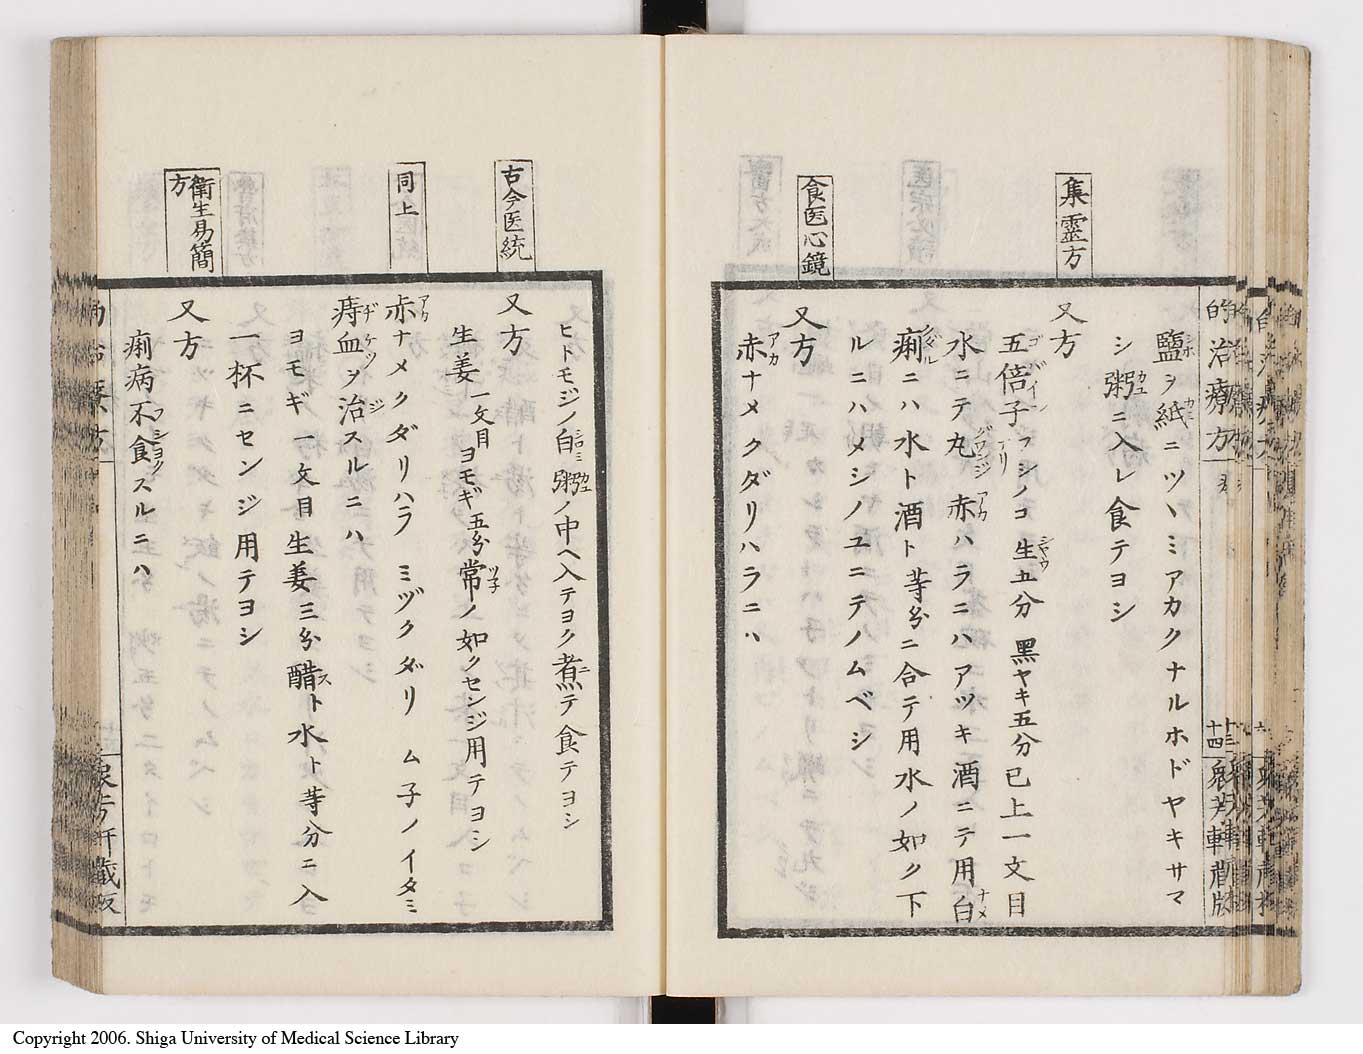 集靈方
食医心鏡
鹽ヲ紙ニツヽミアカクナルホドヤキサマ
シ粥ニ入レ食テヨシ
又方
五倍子フシノコ生五分黒ヤキ五分已上一文目
水ニテ丸赤ハラニハアツキ酒ニテ用白
痢ニハ水ト酒ト等分ニ合テ用水ノ如ク下
ルニハメシノユニテノムベシ
又方
赤ナメクダリハラニハ
的治療方
十四
古今医統
同上
衛生易簡方
ヒトモジノ白粥ノ中ヘ入テヨク煮テ食テヨシ
又方
生姜一文目ヨモギ五分常ノ如クセンジ用テヨシ
赤ナメクダリハラミヅクダリム子ノイタミ
痔血ヲ治スルニハ
ヨモギ一文目生姜三分醋ト水ト等分ニ入
一杯ニセンジ用テヨシ
又方
痢病不食スルニハ
Copyright 2006. Shiga University of Medical Science Library